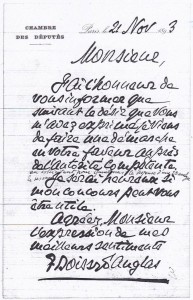 CHAMBRE
DES DÉPUTÉS
Paris, le 21 Nov 1893
Monsieur,
J'ai l'honneur de
vous informer que
suivant le désir que vous
m'avez exprimé, je viens
de faire une démarche
en votre faveur auprès
de l'autorité compétente.
Je serai heureux si
mon concours peut vous
être utile.
Agréez Monsieur
l'expression de mes
meilleurs sentiments
Boissy d'Anglas